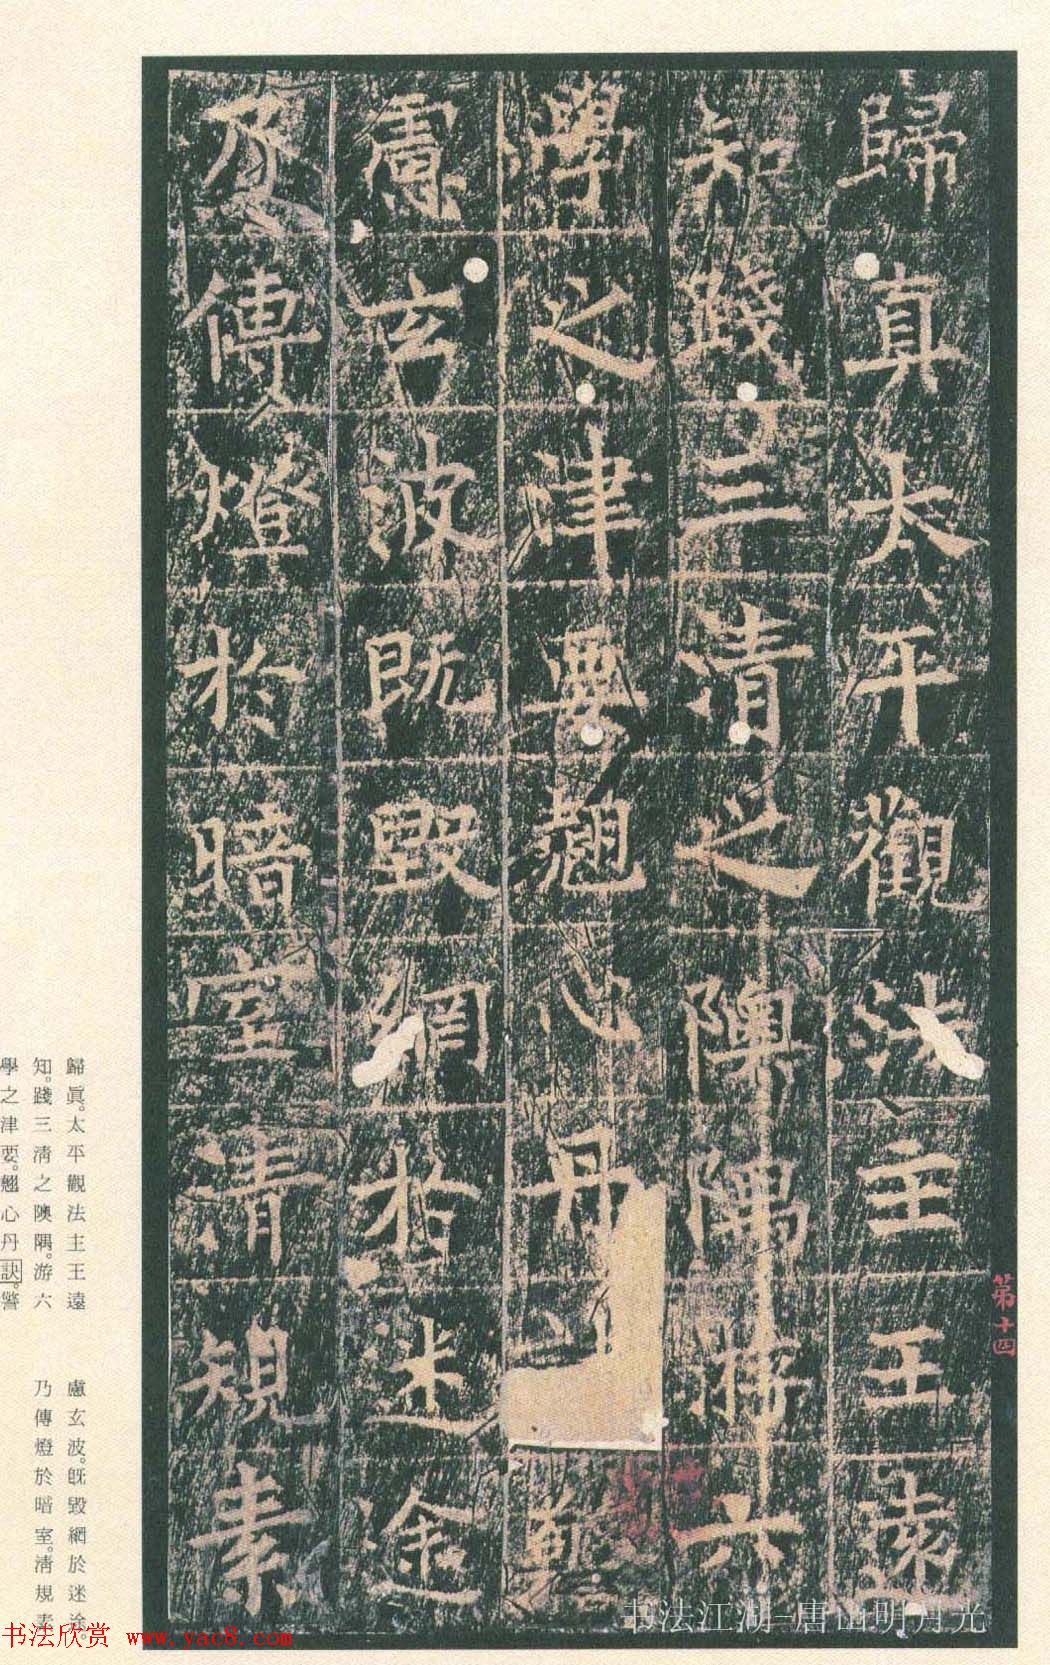 歸真太平觀法主王遠
知踐三清之隩隅游六
學之津要翹心丹
慮玄波既毀網於迷途
乃傳燈於暗室清規素
第十四
歸眞。太平觀法主王遠
知。踐三淸之隩隅。游六
學之津要。翹心丹訣。警
慮玄波。旣毀網於迷途。
乃傳燈於暗室。淸規素
书法江湖-唐山明月光
书法欣赏 www.yac8.com